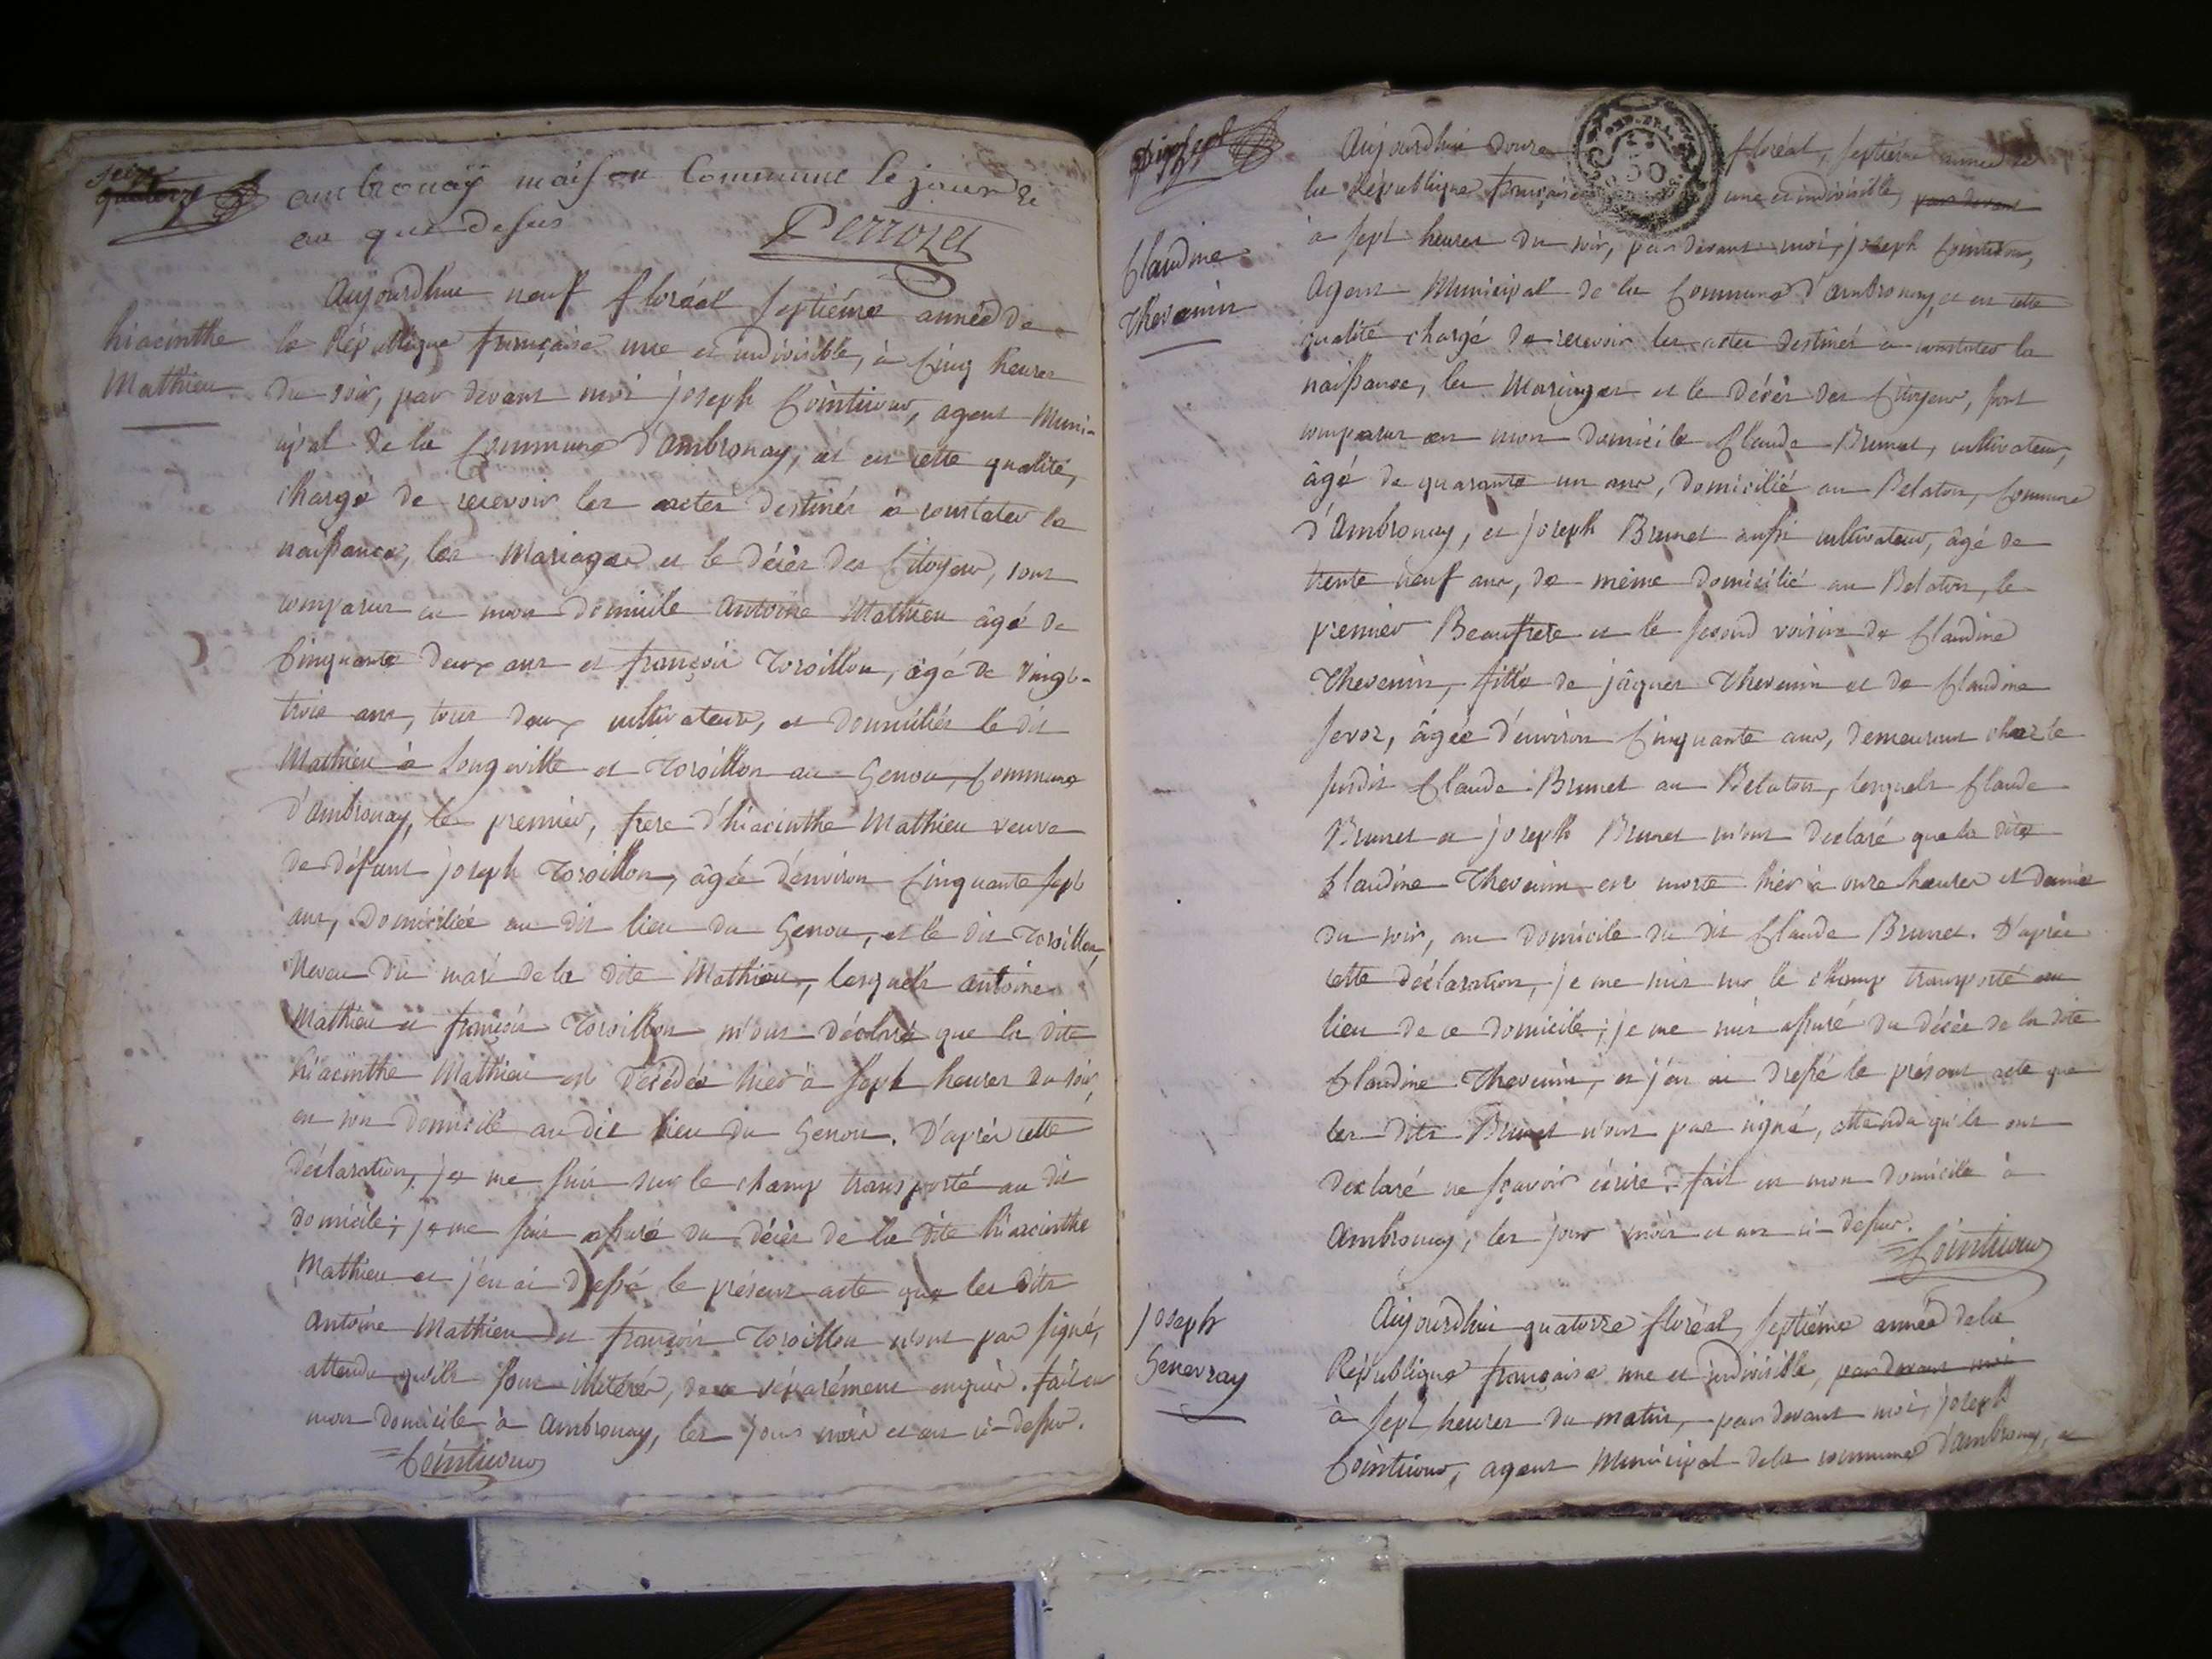 seize
quatorze
ambronaÿ maison Commune le jour et
an que desus
Perrozet
hiacinthe
Mathieu
Aujourdhui neuf floréal septiéme année de
la République française une et indivisible, à Cinq heures
du soir, par devant moi joseph Cointicour, agent Muni-
cipal de la Commune d'Ambronay, et en cette qualité,
chargé de recevoir les actes destinés à constater la
naissance, les Mariages et le décès des Citoyens, sont
comparus en mon domicile Antoine Mathieu âgé de
Cinquante deux ans et françois Toroillon, âgé de vingt-
trois ans, tous deux cultivateurs, et domiciliés le dit
Mathieu à Longeville et Toroillon au Genou, Commune
d'Ambronay, le premier, frere d'hiacinthe Mathieu veuve
de défunt joseph Toroillon, âgée d'environ Cinquante sept
ans, domiciliée au dit lieu du Genou, et le dit Toroillon,
Neveu du mari de la dite Mathieu, lesquels antoine
Mathieu et françois Toroillon m'ont déclaré que la dite
hiacinthe Mathieu est décédée hier à sept heures du soir,
en son domicile au dit lieu du Genou. D'après cette
déclaration, je me suis sur le champ transporté au dit
domicile; je me suis assuré du décès de la dite hiacinthe
Mathieu et j'en ai dressé le présent acte que les dits
Antoine Mathieu et françois Toroillon n'ont pas signé,
attendu qu'ils sont illitérés, de ce séparément enquis. fait en
mon domicile à Ambronay, les jour mois et an ci-dessus.
Cointicour
Dix sept
Claudine
Thevenin
Aujourdhui douze floréal, septiéme année de
la République française une et indivisible, par devant
à sept heures du soir, par devant moi, joseph Cointicour,
Agent Municipal de la Commune d'Ambronay, et en cette
qualité chargé de recevoir les actes destinés à constater la
naissance, les Mariages et le décès des Citoyens, sont
comparus en mon domicile Claude Brunet, cultivateur,
âgé de quarante un ans, domicilié au Belaton, Commune
d'Ambronay, et joseph Brunet aussi cultivateur, âgé de
trente neuf ans, de même domicilié au Belaton, le
premier Beaufrere et le second voisin de Claudine
Thevenin, fille de jâques Thevenin et de Claudine
Jevoz, âgée d'environ Cinquante ans, demeurant chez le
susdit Claude Brunet au Belaton, lesquels Claude
Brunet et joseph Brunet m'ont déclaré que la dite
Claudine Thevenin est morte hier à onze heures et demie
du soir, au domicile du dit Claude Brunet. D'après
cette déclaration, je me suis sur le champ transporté au
lieu de ce domicile; je me suis assuré du décès de la dite
Claudine Thevenin, et j'en ai dressé le présent acte que
les dits Brunet n'ont pas signé, attendu qu'ils ont
déclaré ne sçavoir écrire. fait en mon domicile à
Ambronay, les jour mois et an ci-dessus.
Cointicour
joseph
Genevray
Aujourdhui quatorze floréal, septiéme année de la
République française une et indivisible, par devant moi
à sept heures du matin, par devant moi, joseph
Cointicour, agent Municipal de la commune d'Ambronay, et